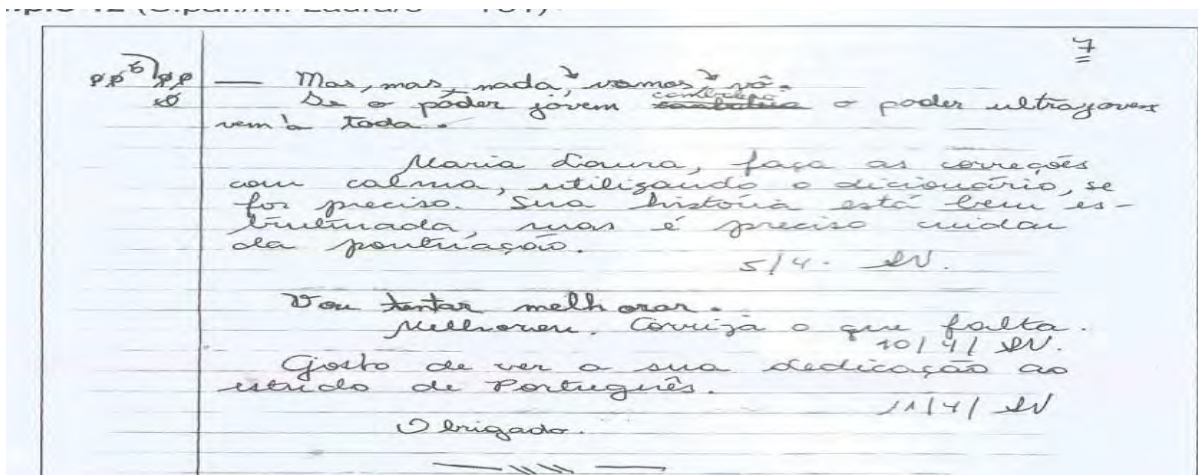 7
— Mas, mas, nada, vamos vô.
Se o poder jovem começa o poder ultrajovem
vem à toda.
Maria Laura, faça as correções
com calma, utilizando o dicionário, se
for preciso. Sua história está bem es-
truturada, mas é preciso cuidar
da pontuação.
5/4. IN.
Vou tentar melhorar.
Melhorou. Corrija o que falta.
10/4/ IN.
Gosto de ver a sua dedicação ao
estudo de Português.
11/4/ IN
Obrigado.